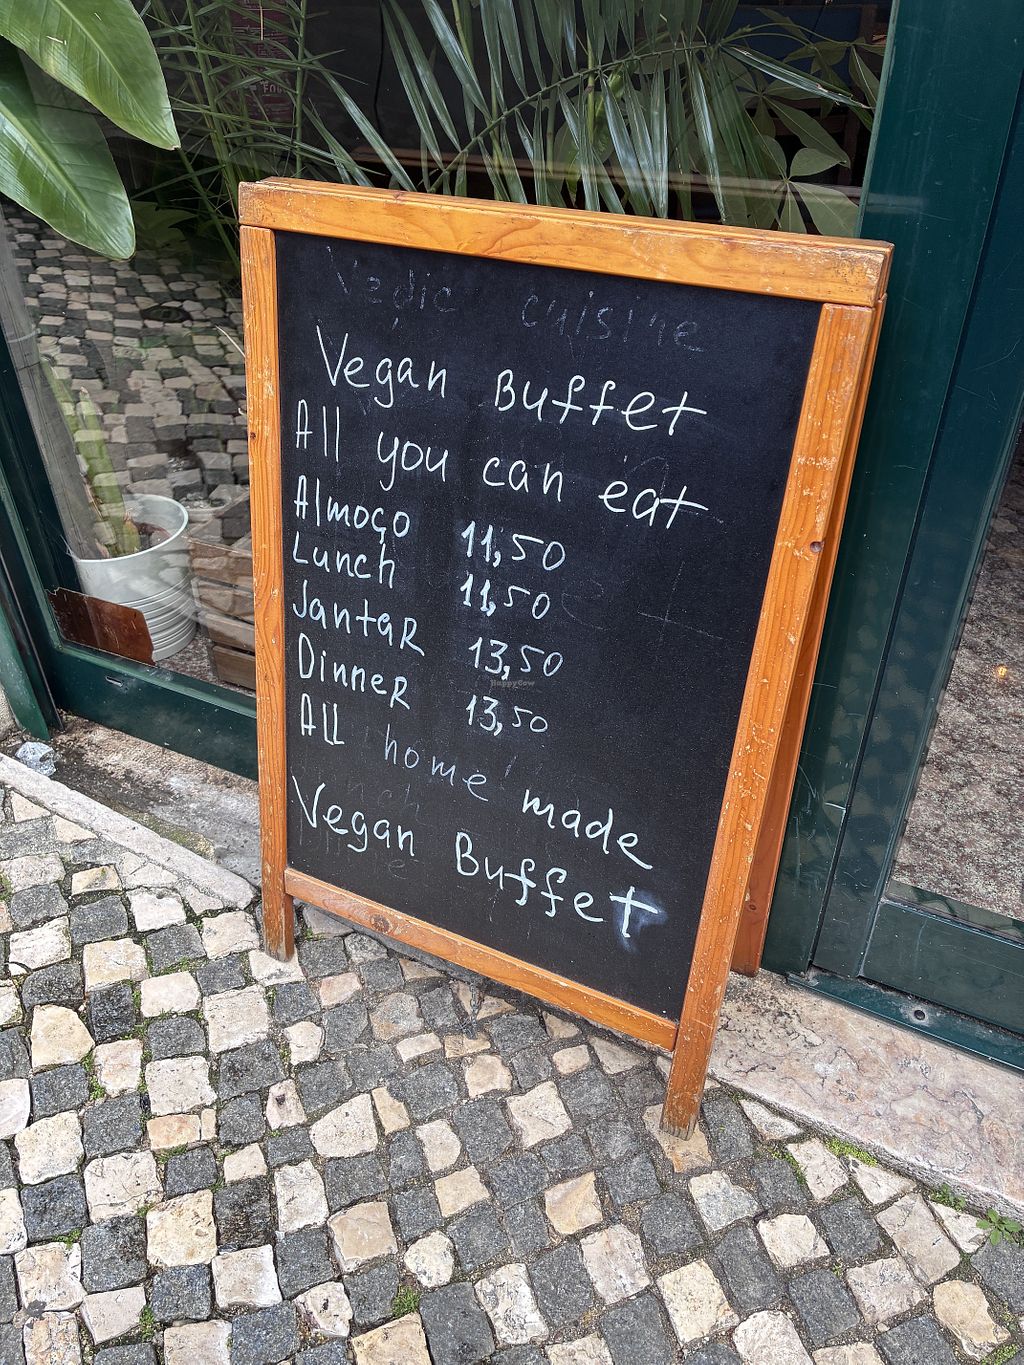 Vedic cuisine
Vegan Buffet
All you can eat
Almoço 11,50
Lunch 11,50
Jantar 13,50
Dinner 13,50
ALL home made
Vegan Buffet
HappyCow